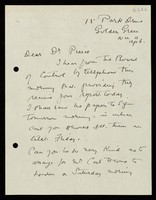 15 Park Drive
Golders Green
Nov 11
1926
Dear Dr Pierce
I hear from the Board
of Control by telephone this
morning that providing they
receive your report today
I shall have the papers to sign
tomorrow morning: in which
case you should get them on
Friday.
Can you be very kind & to
arrange for Mr
on Saturday morning